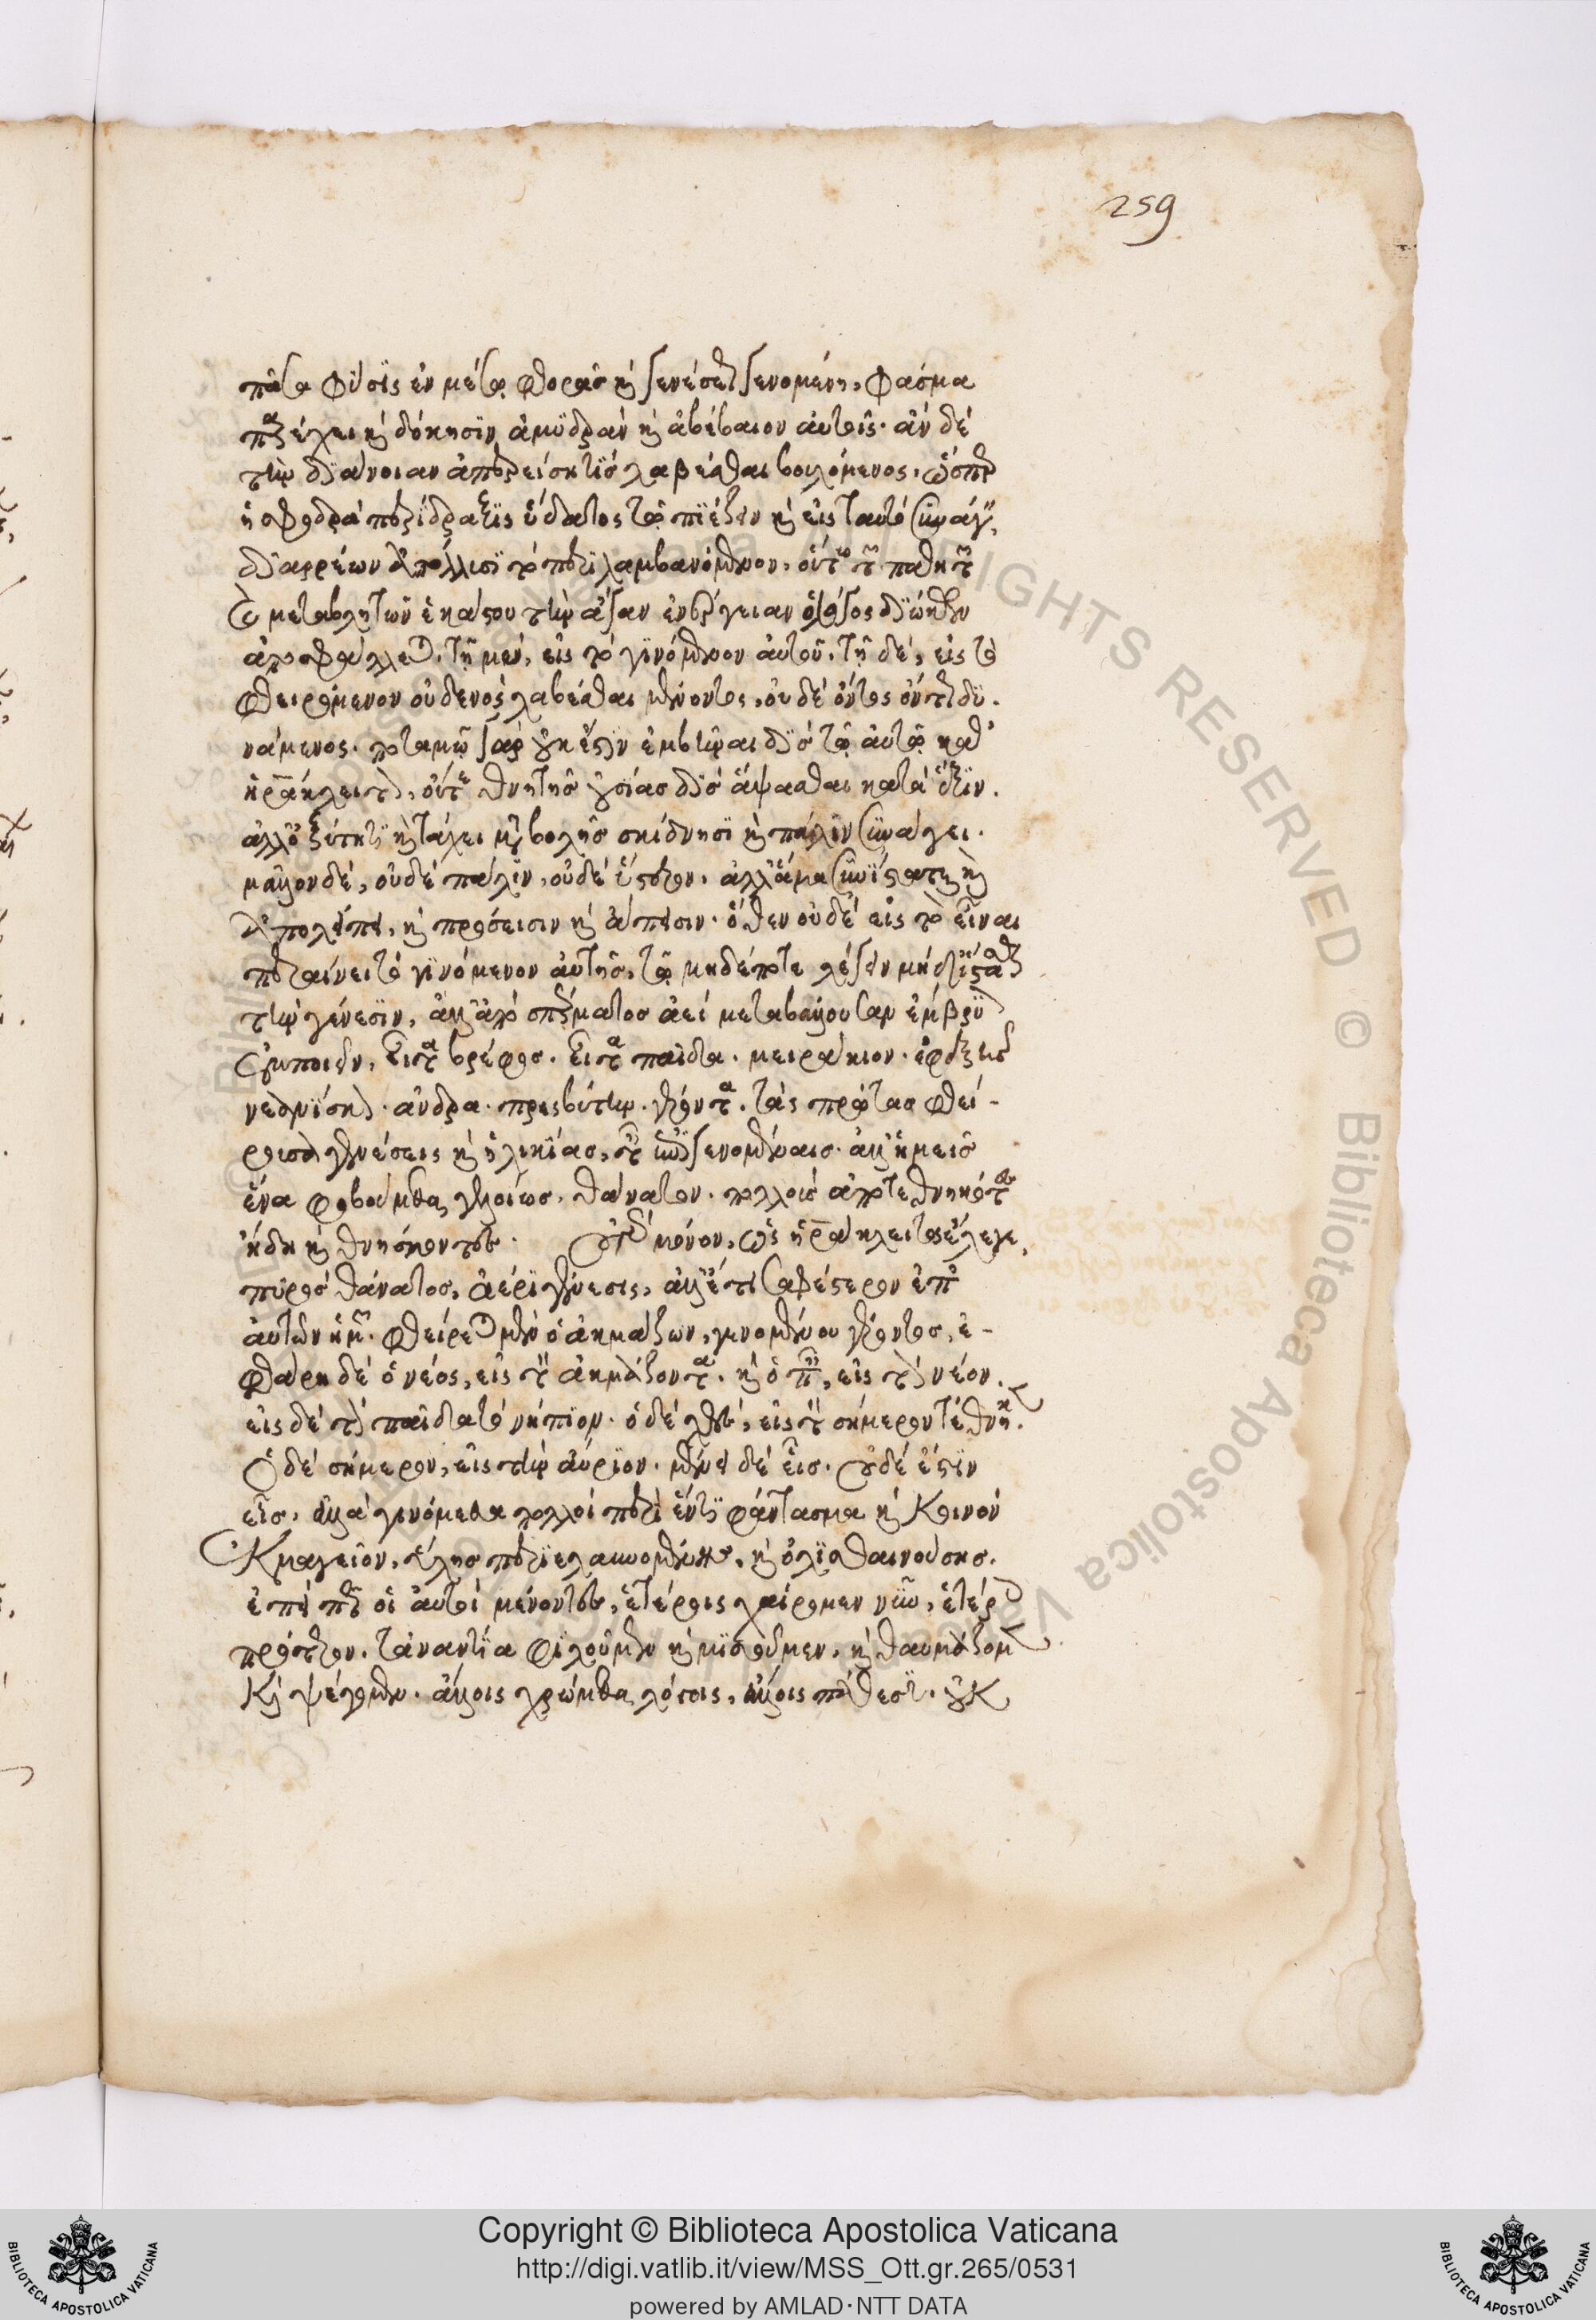 259
πᾶσα φύσις ἐν μέσῳ φθορᾶς καὶ γενέσεως γενομένη, φάσμα
παρέχει καὶ δόκησιν ἀμυδρὰν καὶ ἀβέβαιον αὑτῆς· ἂν δὲ
τὴν διάνοιαν ἐπερείσῃ τίς λαβέσθαι βουλόμενος, ὥσπερ
ἡ σφοδρὰ περίδραξις ὕδατος τῷ πιέζειν καὶ εἰς ταυτὸ συνάγειν,
διαρρέων ἀπόλλυσι τὸ περιλαμβανόμενον, οὕτω τῶν παθητῶν
καὶ μεταβλητῶν ἑκάστου τὴν ἄγαν ἐνάργειαν ὁ λόγος διώκων
ἀποσφάλλεται, τῇ μὲν, εἰς τὸ γινόμενον αὐτοῦ, τῇ δὲ, εἰς τὸ
φθειρόμενον οὐδενὸς λαβέσθαι μένοντος, οὐδὲ ὄντος ὄντως δυ-
νάμενος. ποταμῷ γὰρ οὐκ ἔστιν ἐμβῆναι δὶς τῷ αὐτῷ καθ'
ἡράκλειτον, οὔτε θνητῆς οὐσίας δὶς ἅψασθαι κατὰ ἕξιν.
ἀλλ' ὀξύτητι καὶ τάχει μεταβολῆς σκίδνησι καὶ πάλιν συνάγει.
μᾶλλον δὲ, οὐδὲ πάλιν, οὐδὲ ὕστερον, ἀλλ' ἅμα συνίσταται καὶ
ἀπολείπει, καὶ πρόσεισιν καὶ ἄπεισιν· ὅθεν οὐδὲ εἰς τὸ εἶναι
περαίνει τὸ γινόμενον αὐτῆς, τῷ μηδέποτε λέγειν μηδ' ἵστασθαι
τὴν γένεσιν, ἀλλ' ἀπὸ σπέρματος ἀεὶ μεταβάλλουσαν ἔμβρυον
ποιεῖν, εἶτα βρέφος. εἶτα παῖδα. μειράκιον. ἐφεξῆς
νεανίσκον. ἄνδρα. πρεσβύτην. γέροντα. τὰς πρώτας φθεί-
ρουσαν γενέσεις καὶ ἡλικίας, ταῖς ἐπιγενομέναις. ἀλλ' ἡμεῖς
ἕνα φοβούμεθα γελοίως, θάνατον, πολλοὺς ἀποτεθνηκότες
ἤδη καὶ θνήσκοντες. οὐ γὰρ μόνον, ὡς ἡράκλειτος ἔλεγε,
πυρὸς θάνατος, ἀέρι γένεσις, ἀλλ' ἔτι σαφέστερον ἐπ'
αὐτῶν ἡμῶν. φθείρεται μὲν ὁ ἀκμάζων, γενομένου γέροντος, ἐ-
φθάρη δὲ ὁ νέος, εἰς τὸν ἀκμάζοντα. καὶ ὁ παῖς, εἰς τὸν νέον.
εἰς δὲ τὸν παῖδα τὸ νήπιον. ὁ δὲ χθὲς, εἰς τὸν σήμερον τέθνηκεν.
ὁ δὲ σήμερον, εἰς τὴν αὔριον. μένει δὲ εἷς. οὐδέ ἐστιν
εἷς, ἀλλὰ γινόμεθα πολλοὶ περὶ ἕν τι φάντασμα καὶ κοινὸν
ἐκμαγεῖον, ὕλης περιελαυνομένης, καὶ ὀλισθαινούσης.
ἐπεὶ πῶς οἱ αὐτοὶ μένοντες, ἑτέροις χαίρομεν νῦν, ἑτέροις
πρότερον, τἀναντία φιλοῦμεν καὶ μισοῦμεν, καὶ θαυμάζομεν
καὶ ψέγομεν. ἄλλοις χρώμεθα λόγοις, ἄλλοις πάθεσι. οὐκ
Copyright © Biblioteca Apostolica Vaticana
http://digi.vatlib.it/view/MSS_Ott.gr.265/0531
powered by AMLAD·NTT DATA